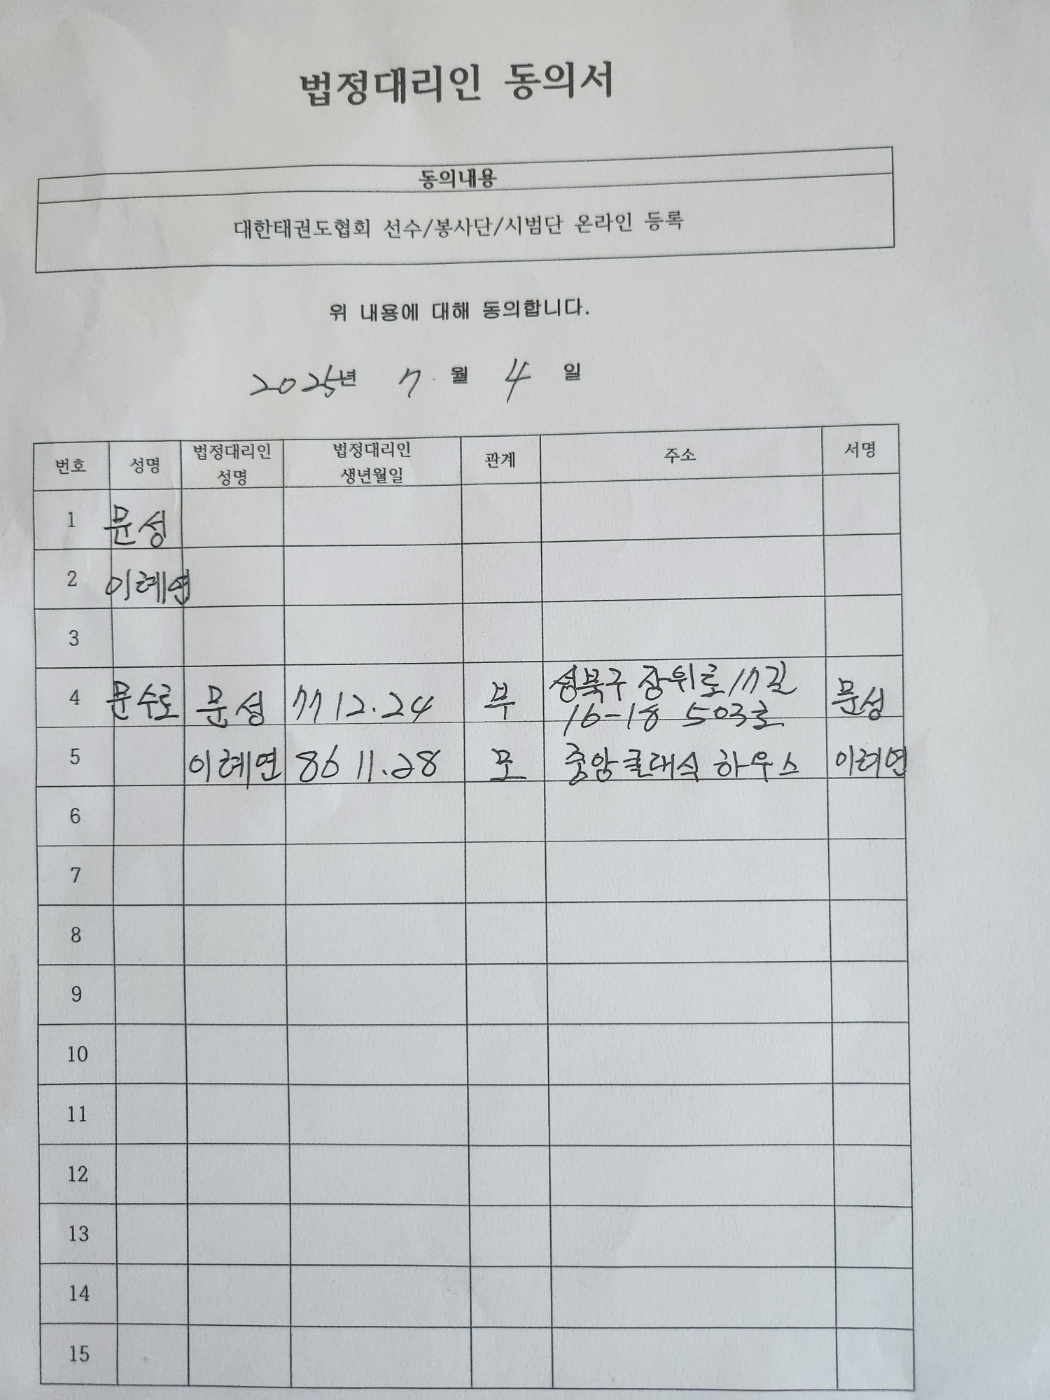 법정대리인 동의서
동의내용
대한태권도협회 선수/봉사단/시범단 온라인 등록
위 내용에 대해 동의합니다.
2025년 7월 4일
번호 성명 법정대리인 성명 법정대리인 생년월일 관계 주소 서명
1 문성
2 이례연
3
4 문수로 문성 77 12.24 부 성북구 장위로 17길 16-18 503호 문성
5 이례연 86 11.28 모 중앙클래식 하우스 이례연
6
7
8
9
10
11
12
13
14
15